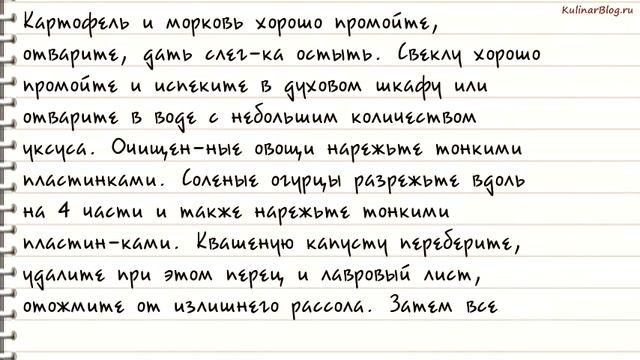 KulinarBlog.ru
Картофель и морковь хорошо промойте,
отварите, дать слег-ка остыть. Свеклу хорошо
промойте и испеките в духовом шкафу или
отварите в воде с небольшим количеством
уксуса. Очищен-ные овощи нарежьте тонкими
пластинками. Соленые огурцы разрежьте вдоль
на 4 части и также нарежьте тонкими
пластин-ками. Квашеную капусту переберите,
удалите при этом перец и лавровый лист,
отожмите от излишнего рассола. Затем все